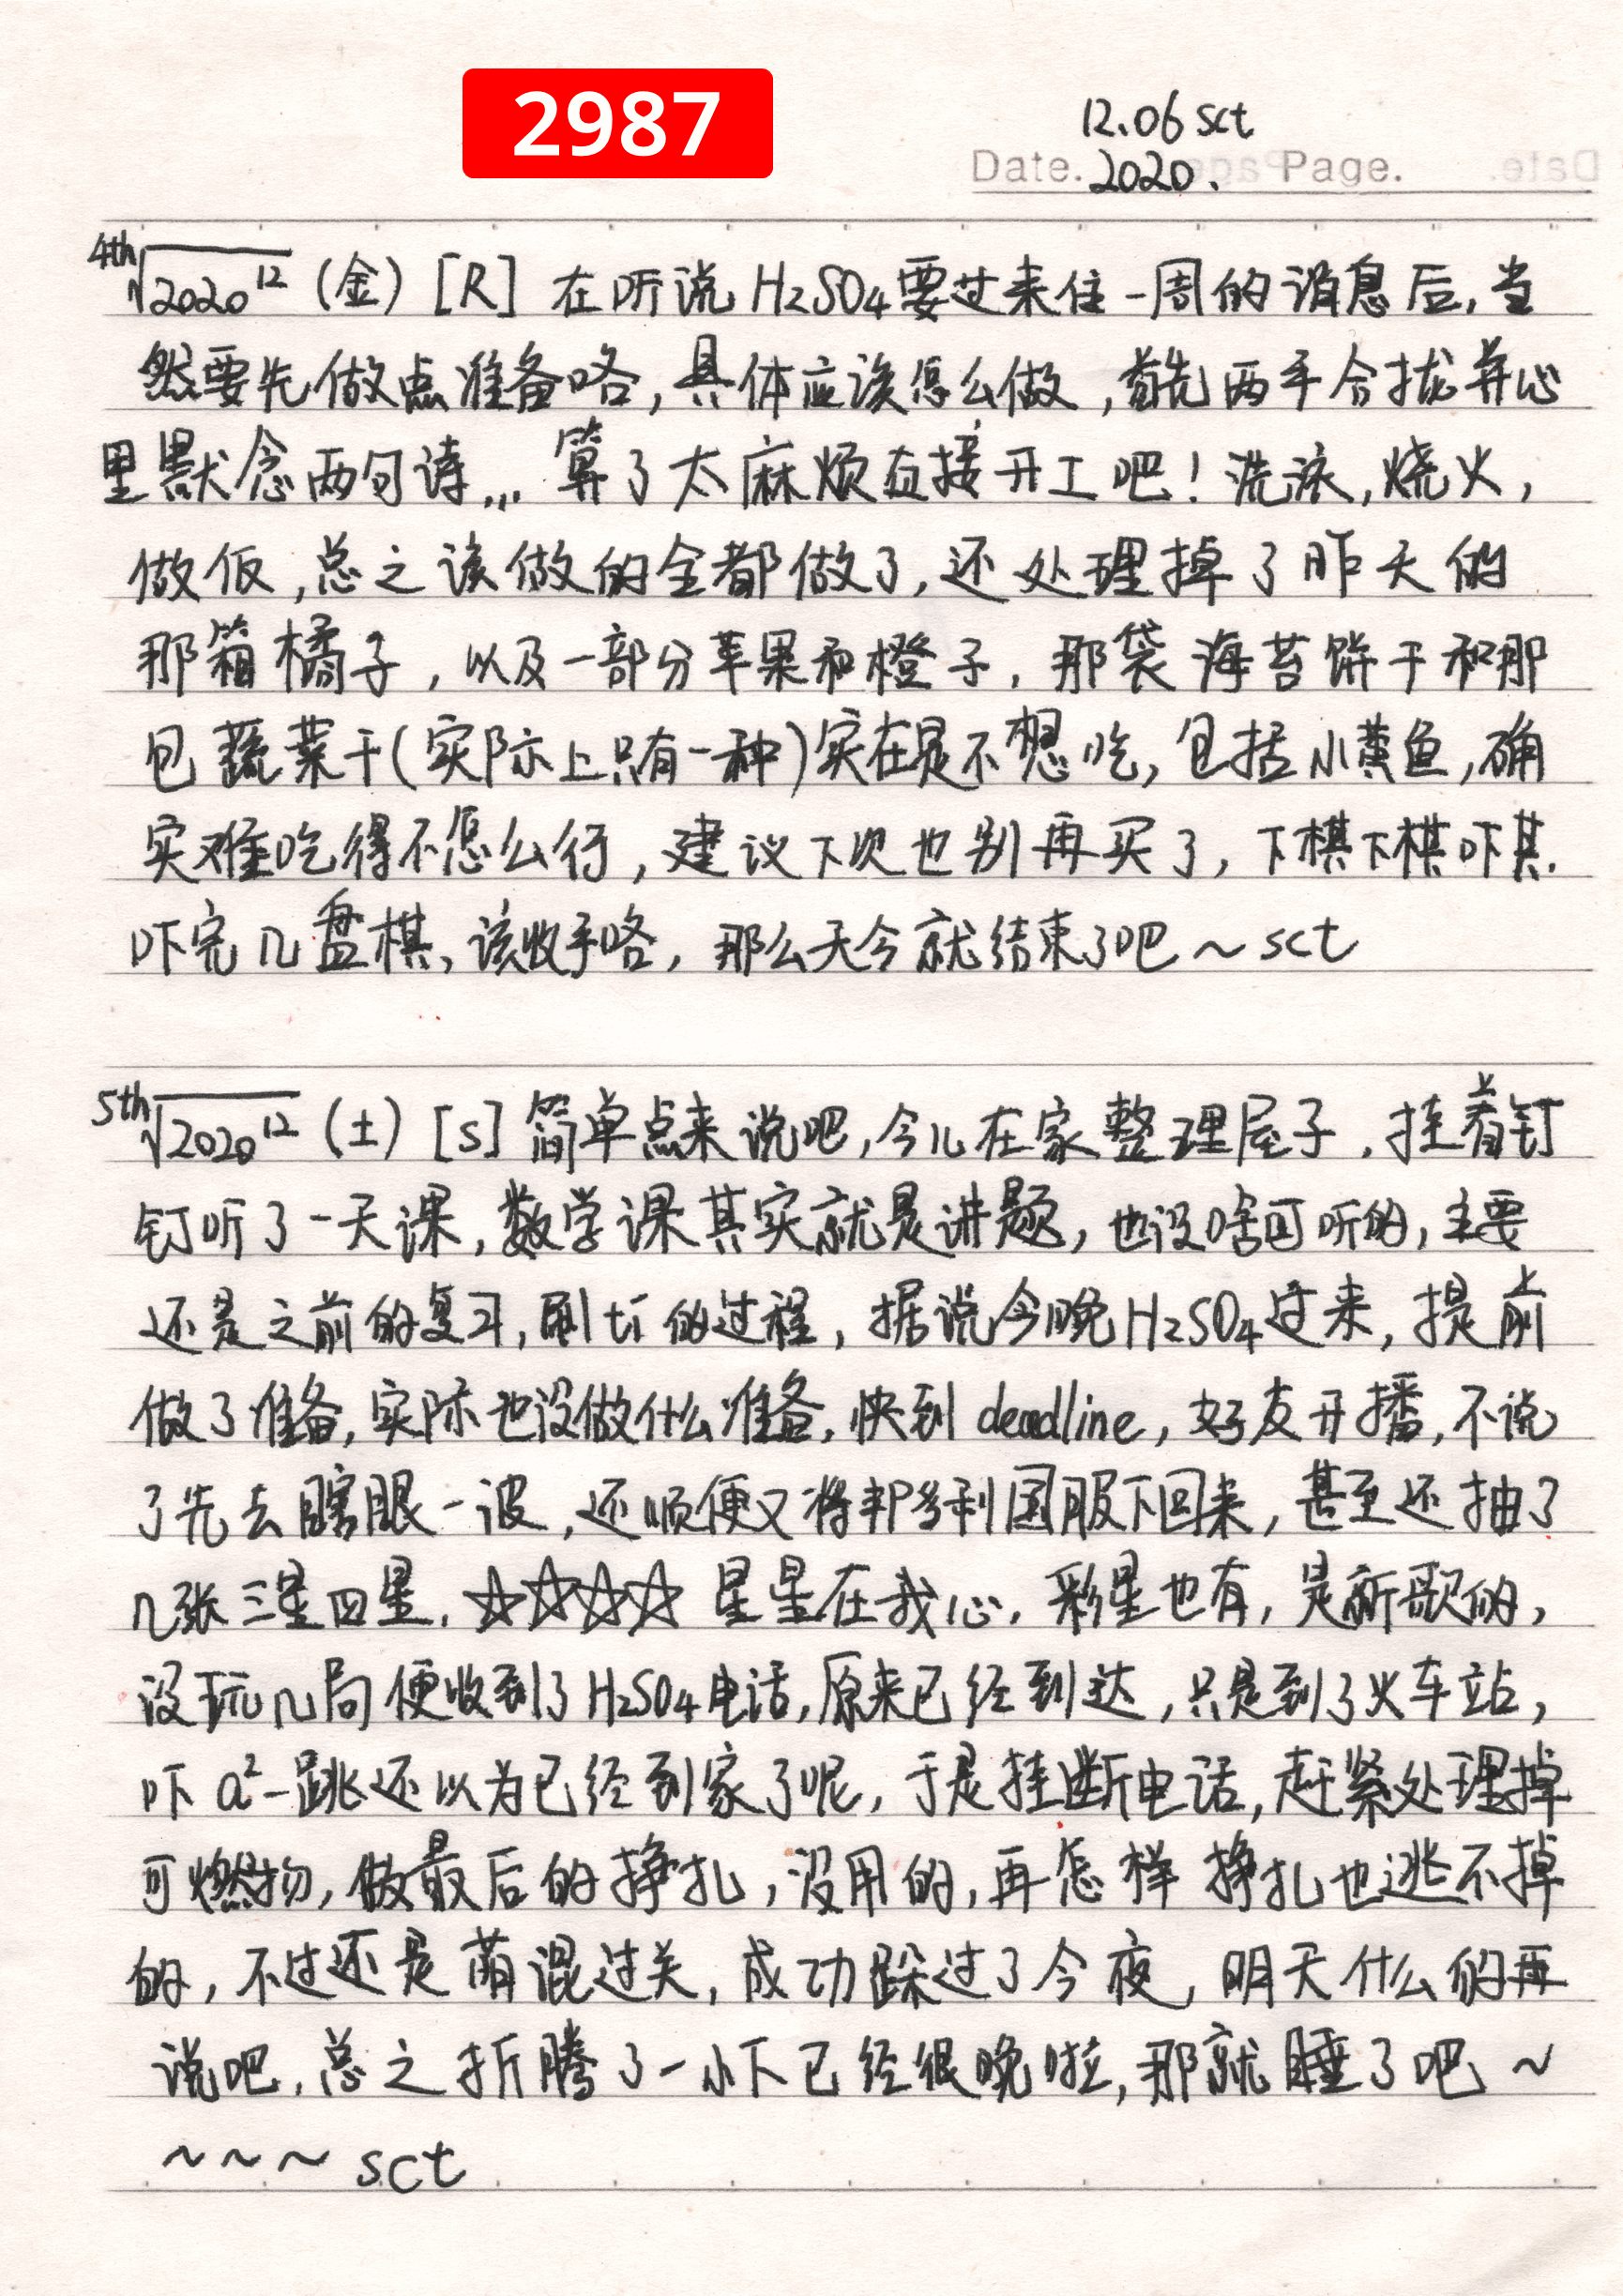 2987
12.06 sct
Date. 2020. Page.
4th√2020¹² (金) [R] 在听说H₂SO₄要过来住一周的消息后,当
然要先做点准备咯,具体应该怎么做,首先两手合拢并心
里默念两句诗... 算了太麻烦直接开工吧!洗漱,烧火,
做饭,总之该做的全都做了,还处理掉了昨天的
那箱橘子,以及一部分苹果和橙子,那袋海苔饼干和那
包蔬菜干(实际上只有一种)实在是不想吃,包括小黄鱼,确
实难吃得不怎么行,建议下次也别再买了,下棋下棋吓棋.
吓完几盘棋,该收手咯,那么天今就结束了吧~sct
5th√2020¹² (土) [S] 简单点来说吧,今儿在家整理屋子,挂着钉
钉听了一天课,数学课其实就是讲题,也没啥可听的,主要
还是之前的复习,刷ti的过程,据说今晚H₂SO₄过来,提前
做了准备,实际也没做什么准备,快到deadline,好友开播,不说
了先去瞎眼一波,还顺便又将邦多利国服下回来,甚至还抽了
几张三星四星,☆☆☆☆ 星星在我心,彩星也有,是新歌的,
没玩几局便收到了H₂SO₄电话,原来已经到达,只是到了火车站,
吓a²一跳还以为已经到家了呢,于是挂断电话,赶紧处理掉
可燃物,做最后的挣扎,没用的,再怎样挣扎也逃不掉
的,不过还是萌混过关,成功躲过了今夜,明天什么的再
说吧,总之折腾了一小下已经很晚啦,那就睡了吧~
~~~sct